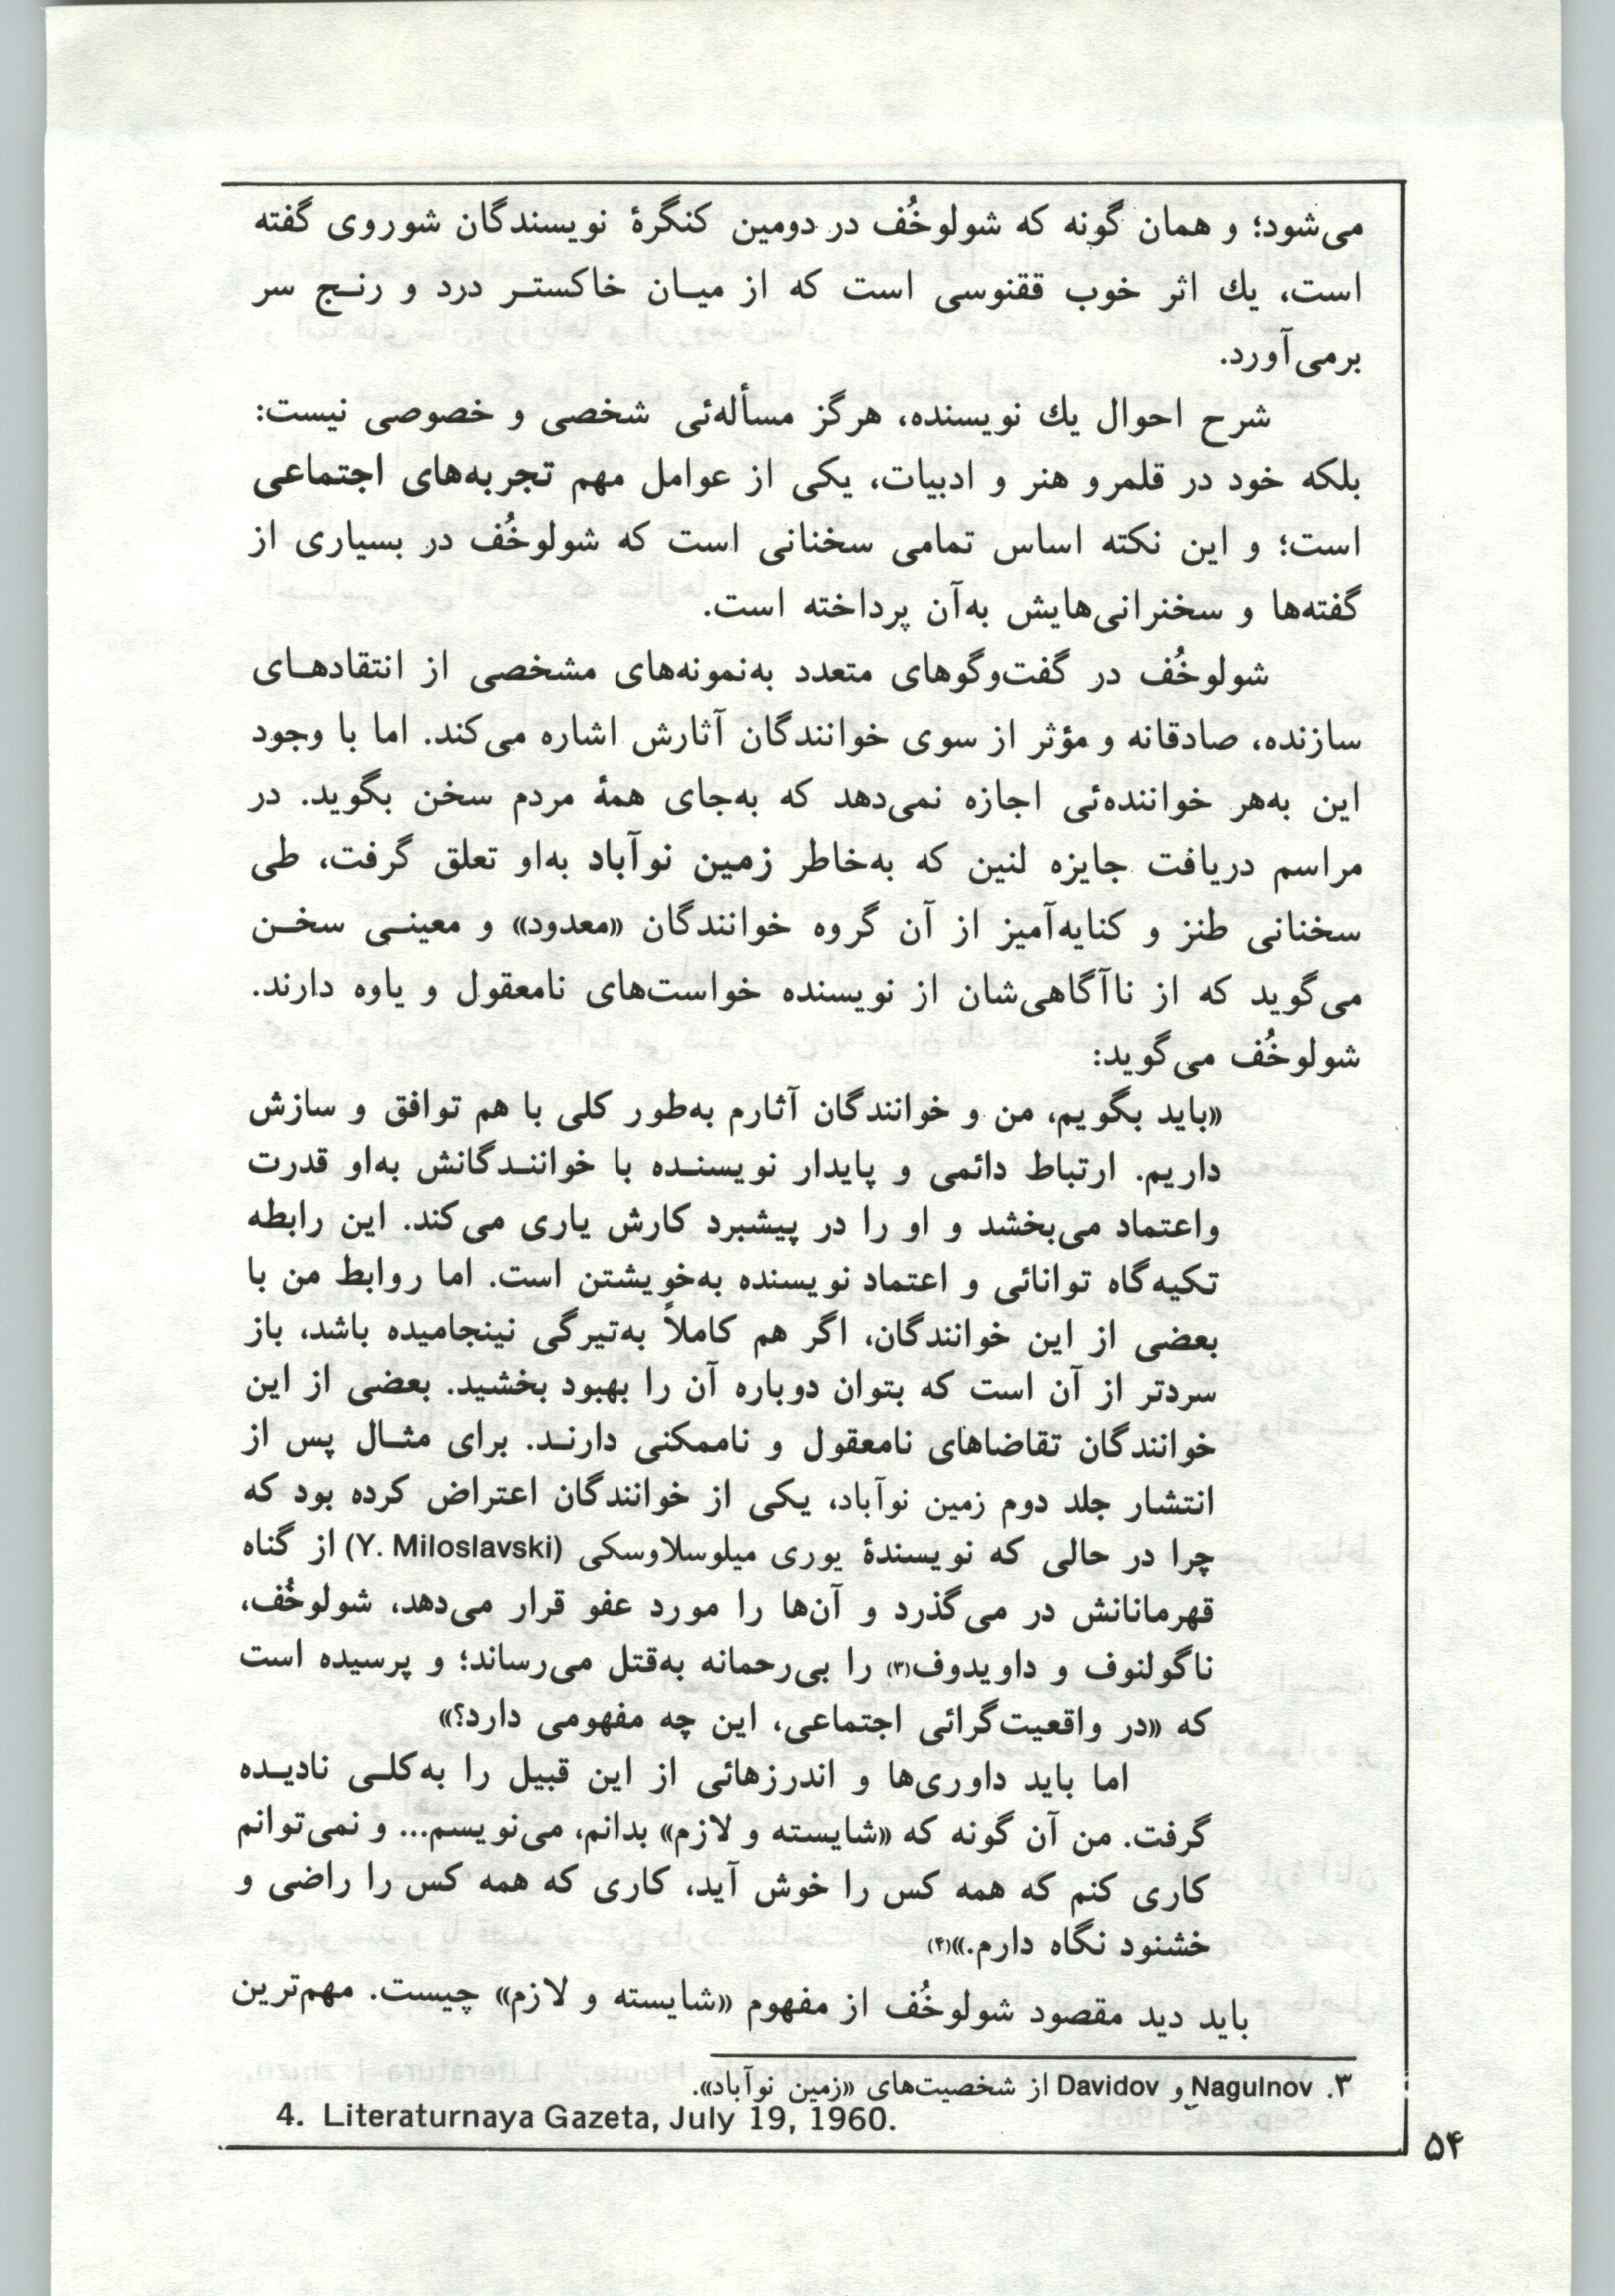 می‌شود؛ و همان گونه که شولوخُف در دومین کنگرهٔ نویسندگان شوروی گفته
است، یك اثر خوب ققنوسی است که از میـان خاکستـر درد و رنـج سر
برمی‌آورد.
شرح احوال یك نویسنده، هرگز مسأله‌ئی شخصی و خصوصی نیست:
بلکه خود در قلمرو هنر و ادبیات، یکی از عوامل مهم تجربه‌های اجتماعی
است؛ و این نکته اساس تمامی سخنانی است که شولوخُف در بسیاری از
گفته‌ها و سخنرانی‌هایش به‌آن پرداخته است.
شولوخُف در گفت‌وگوهای متعدد به‌نمونه‌های مشخصی از انتقادهـای
سازنده، صادقانه و مؤثر از سوی خوانندگان آثارش اشاره می‌کند. اما با وجود
این به‌هر خواننده‌ئی اجازه نمی‌دهد که به‌جای همهٔ مردم سخن بگوید. در
مراسم دریافت جایزه لنین که به‌خاطر زمین نوآباد به‌او تعلق گرفت، طی
سخنانی طنز و کنایه‌آمیز از آن گروه خوانندگان «معدود» و معینـی سخـن
می‌گوید که از ناآگاهی‌شان از نویسنده خواست‌های نامعقول و یاوه دارند.
شولوخُف می‌گوید:
«باید بگویم، من و خوانندگان آثارم به‌طور کلی با هم توافق و سازش
داریم. ارتباط دائمی و پایدار نویسنـده با خواننـدگانش به‌او قدرت
واعتماد می‌بخشد و او را در پیشبرد کارش یاری می‌کند. این رابطه
تکیه‌گاه توانائی و اعتماد نویسنده به‌خویشتن است. اما روابط من با
بعضی از این خوانندگان، اگر هم کاملاً به‌تیرگی نینجامیده باشد، باز
سردتر از آن است که بتوان دوباره آن را بهبود بخشید. بعضی از این
خوانندگان تقاضاهای نامعقول و ناممکنی دارنـد. برای مثـال پس از
انتشار جلد دوم زمین نوآباد، یکی از خوانندگان اعتراض کرده بود که
چرا در حالی که نویسندهٔ یوری میلوسلاوسکی (Y. Miloslavski) از گناه
قهرمانانش در می‌گذرد و آن‌ها را مورد عفو قرار می‌دهد، شولوخُف،
ناگولنوف و داویدوف(۳) را بی‌رحمانه به‌قتل می‌رساند؛ و پرسیده است
که «در واقعیت‌گرائی اجتماعی، این چه مفهومی دارد؟»
اما باید داوری‌ها و اندرزهائی از این قبیل را به‌کلـی نادیـده
گرفت. من آن گونه که «شایسته و لازم» بدانم، می‌نویسم... و نمی‌توانم
کاری کنم که همه کس را خوش آید، کاری که همه کس را راضی و
خشنود نگاه دارم.»(۴)
باید دید مقصود شولوخُف از مفهوم «شایسته و لازم» چیست. مهم‌ترین
۳. Nagulnov و Davidov از شخصیت‌های «زمین نوآباد».
4. Literaturnaya Gazeta, July 19, 1960.
۵۴